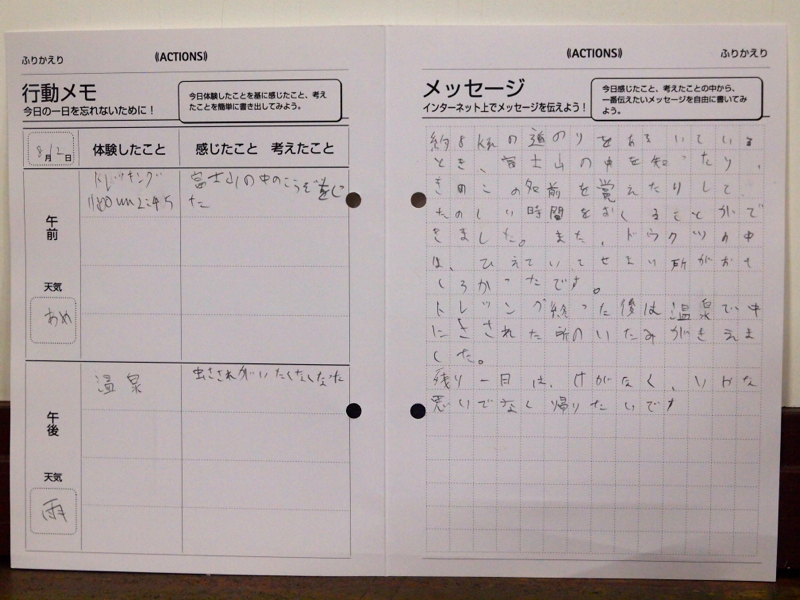 ふりかえり
《ACTIONS》
行動メモ
今日の一日を忘れないために！
今日体験したことを基に感じたこと、考え
たことを簡単に書き出してみよう。
8月12日
体験したこと
感じたこと 考えたこと
午前
天気
あめ
トレッキング
富士山の中の
た
午後
天気
雨
温泉
虫さされがいたくなくなった
《ACTIONS》
ふりかえり
メッセージ
インターネット上でメッセージを伝えよう！
今日感じたこと、考えたことの中から、
一番伝えたいメッセージを自由に書いてみ
よう。
約8kmの道のりをあるいている
とき、富士山の中を知ったり、
きのこの名前を覚えたりして、
たのしい時間をおくることがで
きました。また、ドウクツの中
は、ひえていてせまい所がおも
しろかったです。
トレッングが終った後は温泉で虫
にさされた所のいたみがきえま
した。
残り一日は、けがなく、いやな
思いでなく帰りたいです